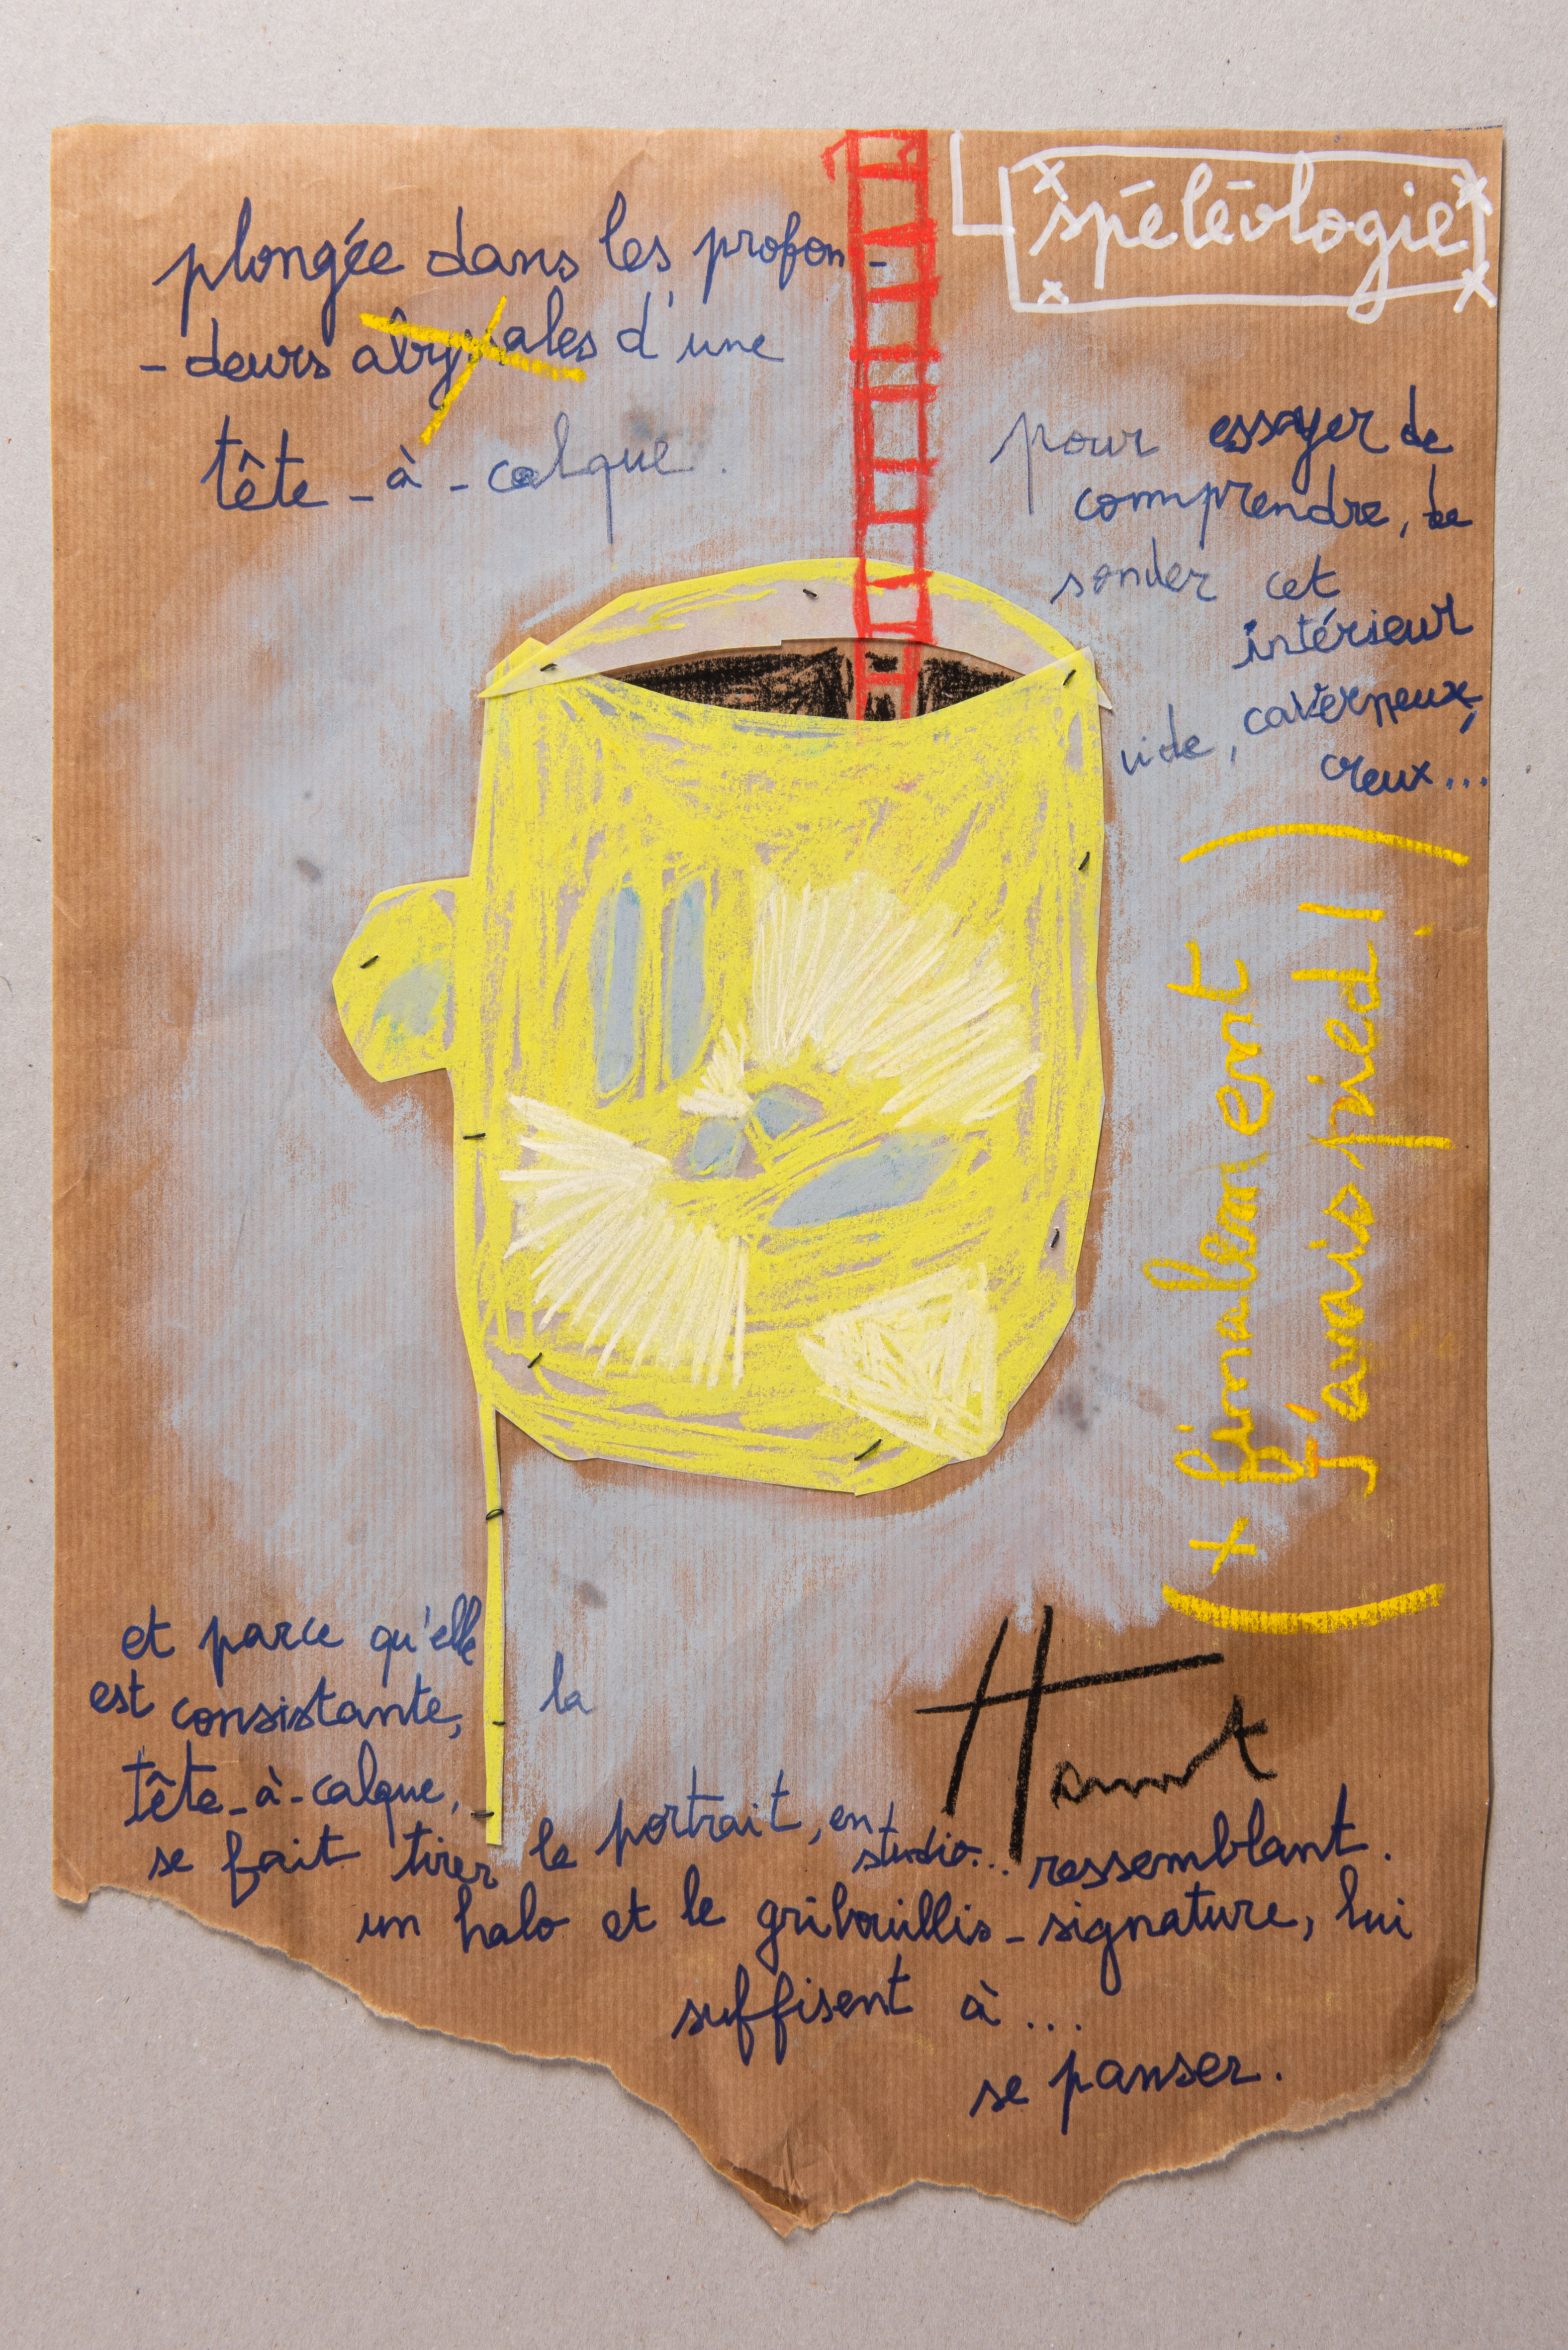 spéléologie
plongée dans les profon-
-deurs abyssales d'une
tête-à-calque.
pour essayer de
comprendre, de
sonder cet
intérieur
vide, caverneux,
creux...
(+ finalement
j'avais pied!)
et parce qu'elle
est consistante, - la
tête-à-calque, -
se fait tirer le portrait, en
studio... ressemblant.
un halo et le gribouillis-signature, lui
suffisent à...
se panser.